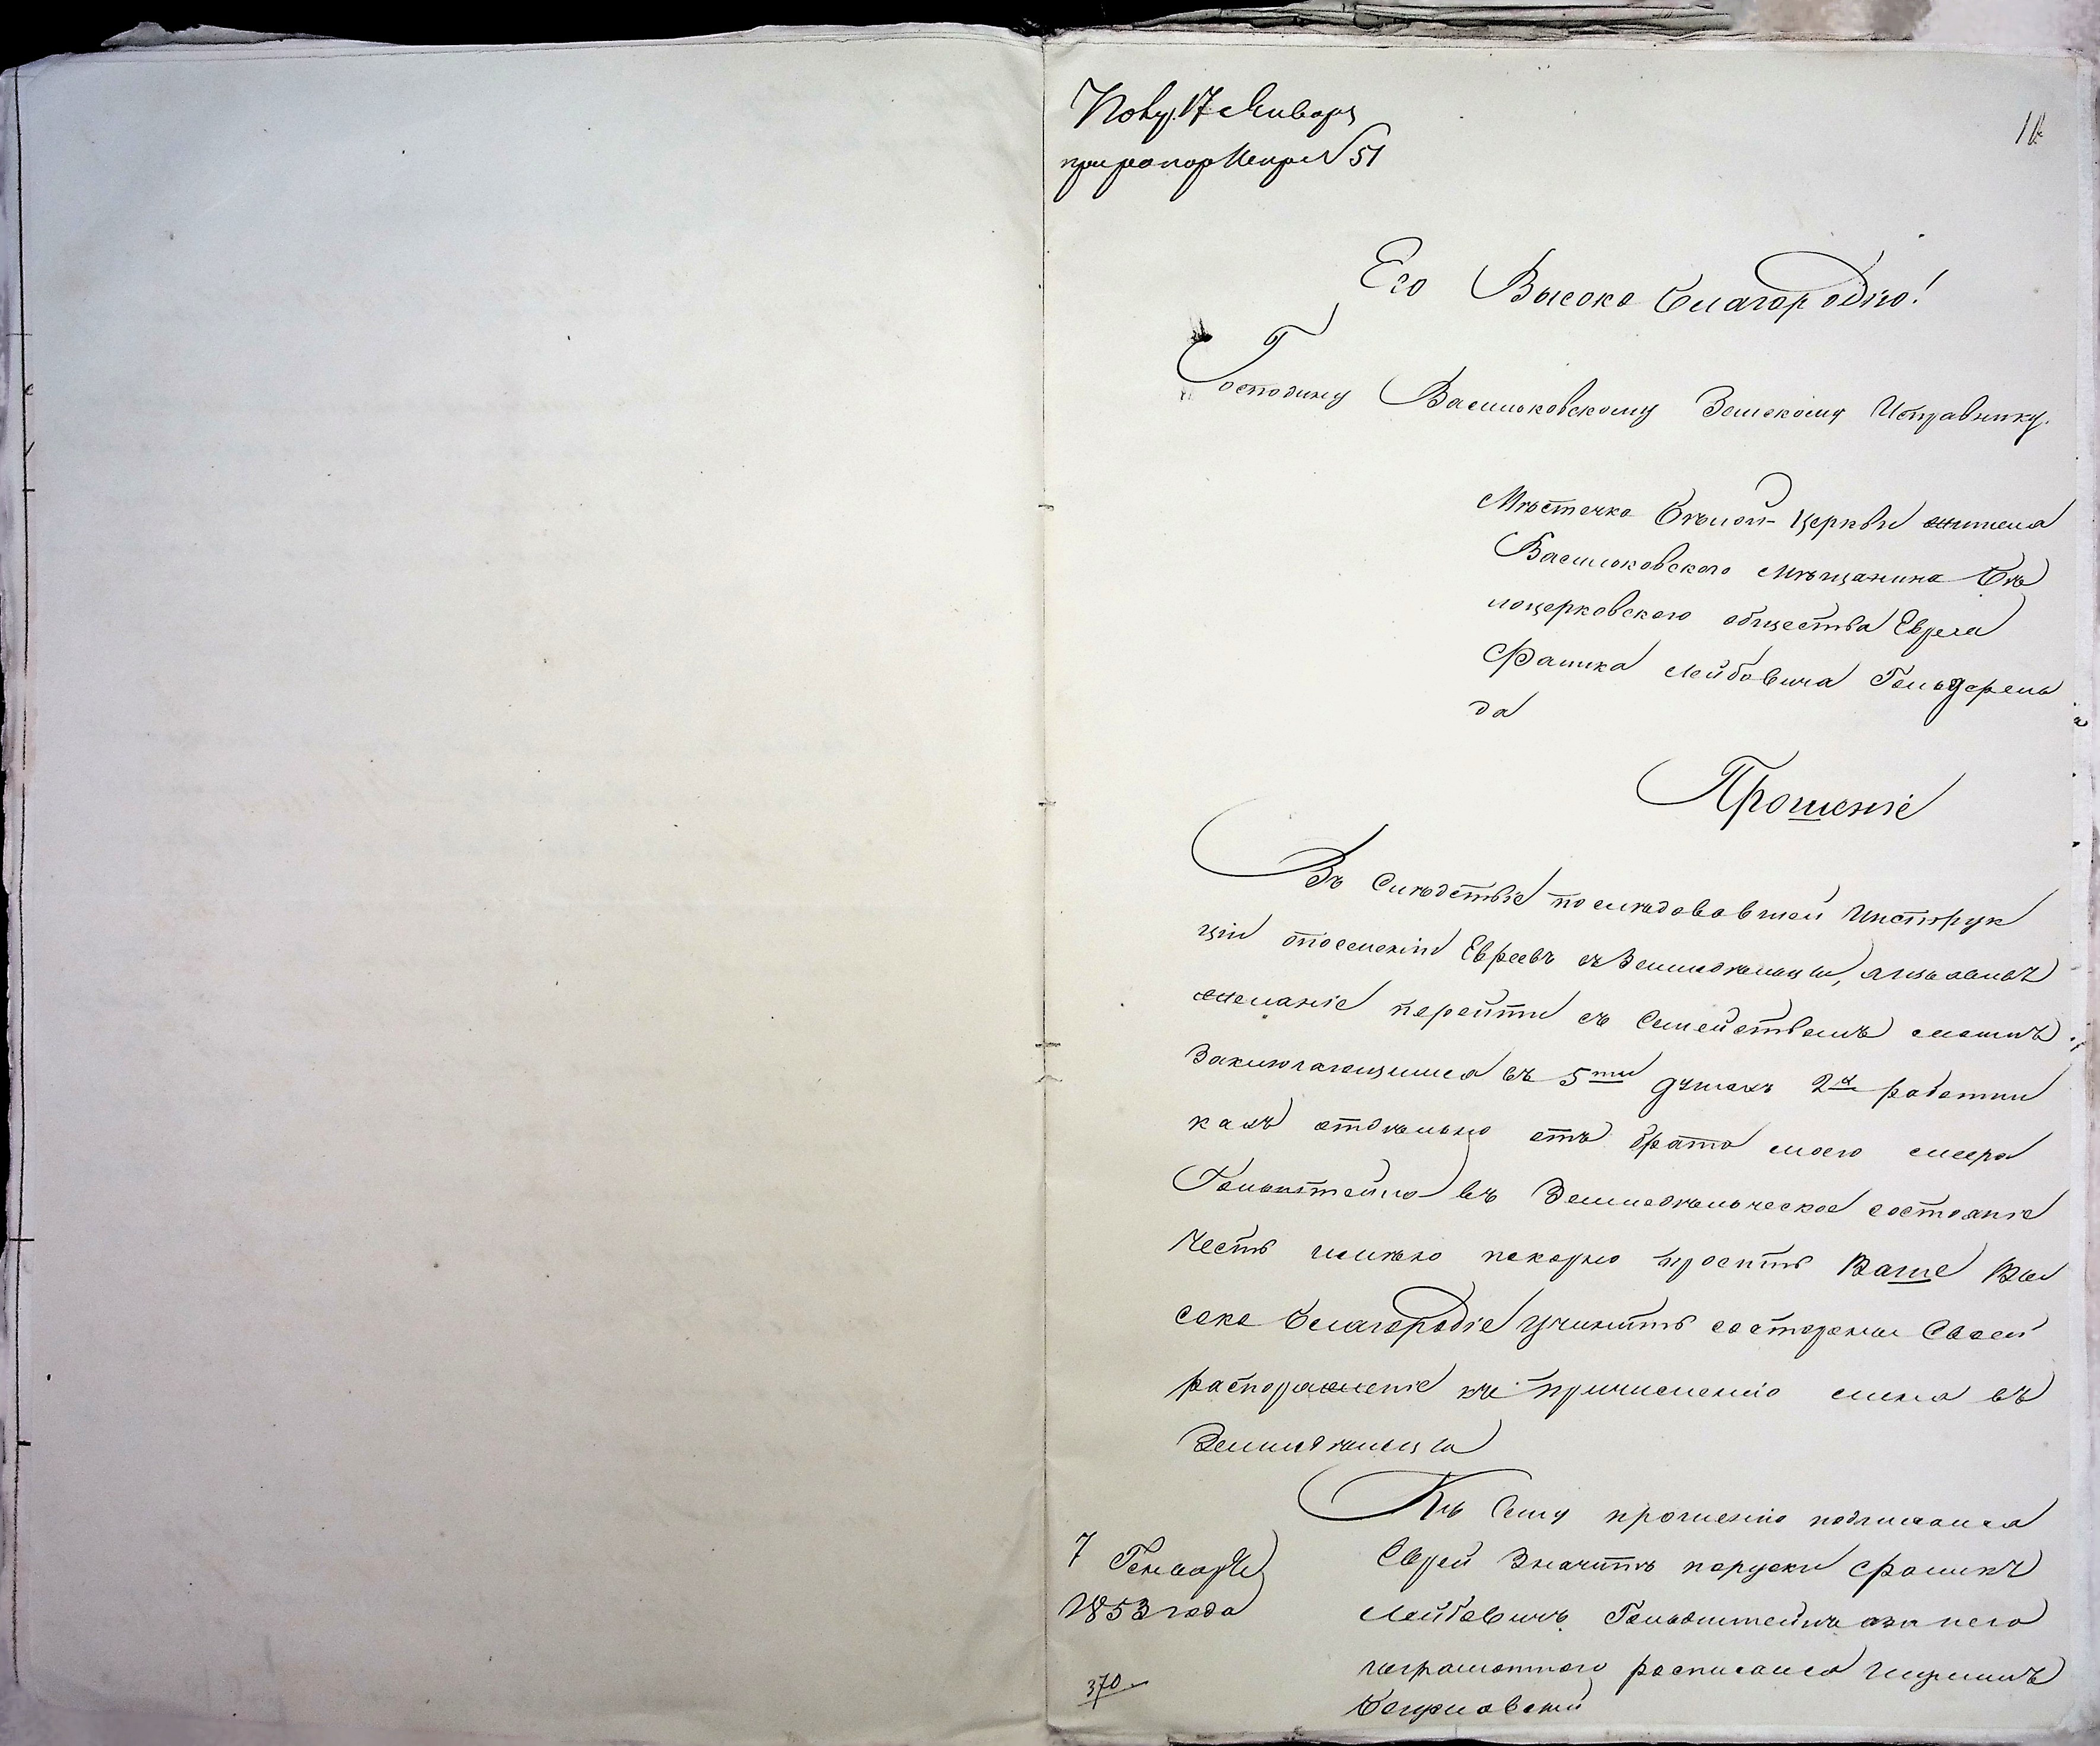 17 Января
№ 51
Его Высоко благородію!
Господину Васильковскому Земскому Исправнику.
Мѣстечка Бѣлой-Церкви жителя
Васильковского мѣщанина Бѣ
лоцерковского общества Еврея
Фалика Лейбовича
да
Прошеніе
Въ Слѣдствіе последовавшей Инструк
ціи Евреевъ въ Земледѣльцы,
желаніе перейти съ Семействомъ моимъ
Заключающимся въ 5ти душахъ 2х работни
кахъ отдѣльно отъ брата моего
Гольдштейна въ Земледѣльческое состояніе
Честь имѣю покорно просить Ваше Вы
соко благородіе учинить состороны Своей
распоряженіе къ причисленію меня въ
Земледѣльцы
Къ Сему прошенію подписался
Еврей Фаликъ
Лейбовичъ Гольдштейнъ а за него
неграмотного росписался
7 Генваря
1853 года
370